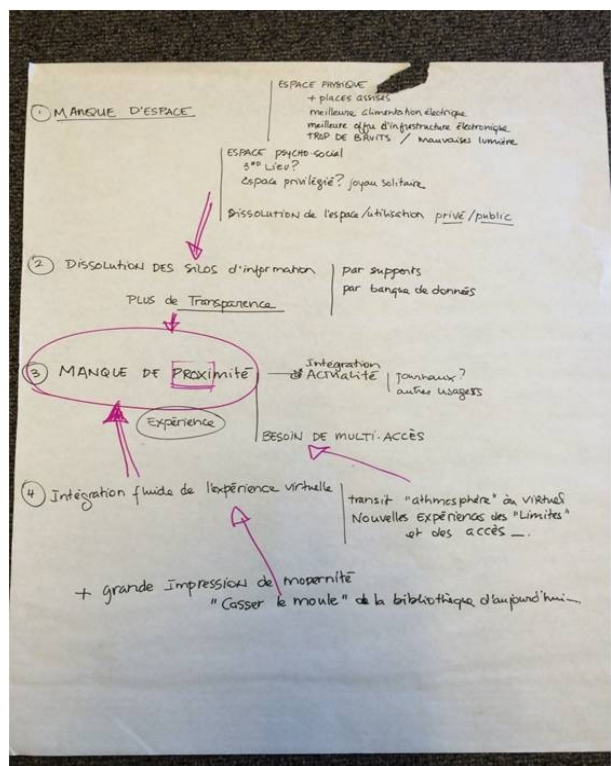 ESPACE PHYSIQUE
+ places assises
① MANQUE D'ESPACE
meilleure alimentation électrique
meilleure offre d'infrastructure électronique
TROP DE BRUITS / mauvaises lumière
ESPACE psycho-social
3ᴿᴰ Lieu?
espace privilégié? joyau solitaire
Dissolution de l'espace/utilisation privé/public
② DISSOLUTION DES SILOS d'information
par supports
par banque de données
PLUS de Transparence
③ MANQUE DE PROXimité
Intégration
Actualité
journaux?
autres usagers
Expérience
BESOIN DE MULTI-ACCÈS
④ Intégration fluide de l'expérience virtuelle
transit "athmosphère" ou virtuel
Nouvelles Expériences des "Limites"
et des accès _.
+ grande Impression de modernité
"Casser le moule" de la bibliothèque d'aujourd'hui